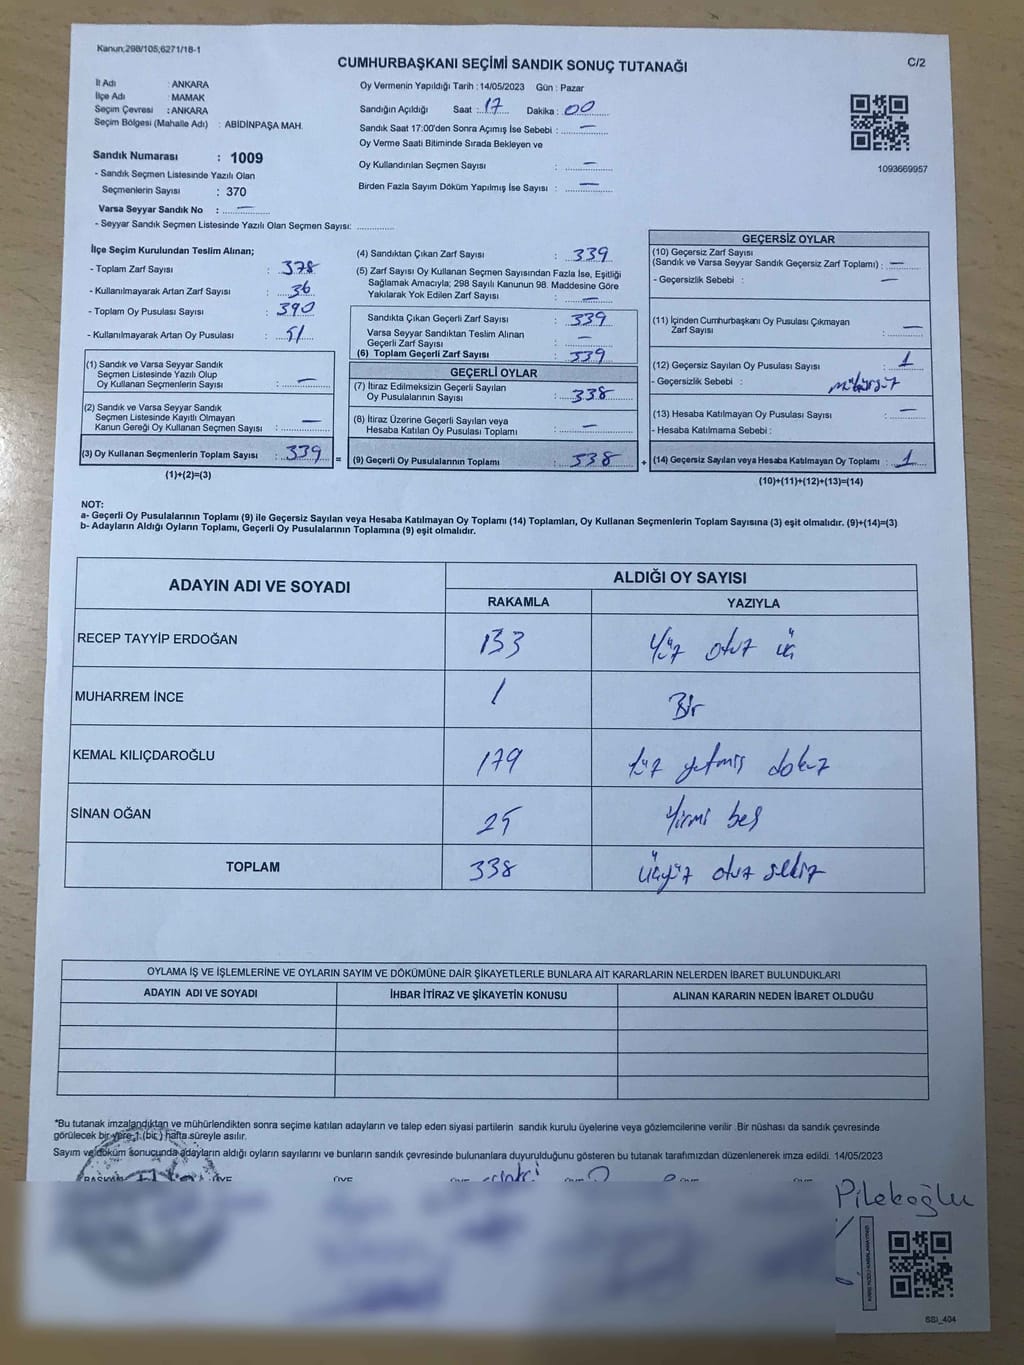 Kanun;298/105,6271/18-1
CUMHURBAŞKANI SEÇİMİ SANDIK SONUÇ TUTANAĞI
C/2
İl Adı : ANKARA
İlçe Adı : MAMAK
Seçim Çevresi : ANKARA
Seçim Bölgesi (Mahalle Adı) : ABİDİNPAŞA MAH.
Oy Vermenin Yapıldığı Tarih : 14/05/2023 Gün : Pazar
Sandığın Açıldığı Saat : 17 Dakika : 00
Sandık Saat 17:00'den Sonra Açımış İse Sebebi : —
Oy Verme Saati Bitiminde Sırada Bekleyen ve
Oy Kullandırılan Seçmen Sayısı : —
Birden Fazla Sayım Döküm Yapılmış İse Sayısı : —
1093669957
Sandık Numarası : 1009
- Sandık Seçmen Listesinde Yazılı Olan
Seçmenlerin Sayısı : 370
Varsa Seyyar Sandık No : —
- Seyyar Sandık Seçmen Listesinde Yazılı Olan Seçmen Sayısı: ..............
İlçe Seçim Kurulundan Teslim Alınan;
- Toplam Zarf Sayısı : 378
- Kullanılmayarak Artan Zarf Sayısı : 36
- Toplam Oy Pusulası Sayısı : 390
- Kullanılmayarak Artan Oy Pusulası : 51
(1) Sandık ve Varsa Seyyar Sandık
Seçmen Listesinde Yazılı Olup
Oy Kullanan Seçmenlerin Sayısı : —
(2) Sandık ve Varsa Seyyar Sandık
Seçmen Listesinde Kayıtlı Olmayan
Kanun Gereği Oy Kullanan Seçmen Sayısı : —
(3) Oy Kullanan Seçmenlerin Toplam Sayısı : 339 =
(1)+(2)=(3)
(4) Sandıktan Çıkan Zarf Sayısı : 339
(5) Zarf Sayısı Oy Kullanan Seçmen Sayısından Fazla İse, Eşitliği
Sağlamak Amacıyla; 298 Sayılı Kanunun 98. Maddesine Göre
Yakılarak Yok Edilen Zarf Sayısı : —
Sandıkta Çıkan Geçerli Zarf Sayısı : 339
Varsa Seyyar Sandıktan Teslim Alınan
Geçerli Zarf Sayısı : —
(6) Toplam Geçerli Zarf Sayısı : 339
GEÇERLİ OYLAR
(7) İtiraz Edilmeksizin Geçerli Sayılan
Oy Pusulalarının Sayısı : 338
(8) İtiraz Üzerine Geçerli Sayılan veya
Hesaba Katılan Oy Pusulası Toplamı : —
(9) Geçerli Oy Pusulalarının Toplamı : 338 +
GEÇERSİZ OYLAR
(10) Geçersiz Zarf Sayısı
(Sandık ve Varsa Seyyar Sandık Geçersiz Zarf Toplamı) : —
- Geçersizlik Sebebi : —
(11) İçinden Cumhurbaşkanı Oy Pusulası Çıkmayan
Zarf Sayısı : —
(12) Geçersiz Sayılan Oy Pusulası Sayısı : 1
- Geçersizlik Sebebi : mühürsüz
(13) Hesaba Katılmayan Oy Pusulası Sayısı : —
- Hesaba Katılmama Sebebi :
(14) Geçersiz Sayılan veya Hesaba Katılmayan Oy Toplamı : 1
(10)+(11)+(12)+(13)=(14)
NOT:
a- Geçerli Oy Pusulalarının Toplamı (9) ile Geçersiz Sayılan veya Hesaba Katılmayan Oy Toplamı (14) Toplamları, Oy Kullanan Seçmenlerin Toplam Sayısına (3) eşit olmalıdır. (9)+(14)=(3)
b- Adayların Aldığı Oyların Toplamı, Geçerli Oy Pusulalarının Toplamına (9) eşit olmalıdır.
ADAYIN ADI VE SOYADI
ALDIĞI OY SAYISI
RAKAMLA YAZIYLA
RECEP TAYYİP ERDOĞAN 133 Yüz otuz üç
MUHARREM İNCE 1 Bir
KEMAL KILIÇDAROĞLU 179 Yüz yetmiş dokuz
SİNAN OĞAN 25 Yirmi beş
TOPLAM 338 üçyüz otuz sekiz
OYLAMA İŞ VE İŞLEMLERİNE VE OYLARIN SAYIM VE DÖKÜMÜNE DAİR ŞİKAYETLERLE BUNLARA AİT KARARLARIN NELERDEN İBARET BULUNDUKLARI
ADAYIN ADI VE SOYADI İHBAR İTİRAZ VE ŞİKAYETİN KONUSU ALINAN KARARIN NEDEN İBARET OLDUĞU
*Bu tutanak imzalandıktan ve mühürlendikten sonra seçime katılan adayların ve talep eden siyasi partilerin sandık kurulu üyelerine veya gözlemcilerine verilir .Bir nüshası da sandık çevresinde
görülecek bir yere 1 (bir ) hafta süreyle asılır.
Sayım ve döküm sonucunda adayların aldığı oyların sayılarını ve bunların sandık çevresinde bulunanlara duyurulduğunu gösteren bu tutanak tarafımızdan düzenlenerek imza edildi. 14/05/2023
BAŞKAN ÜYE ÜYE
Pilekoğlu
SSİ_404